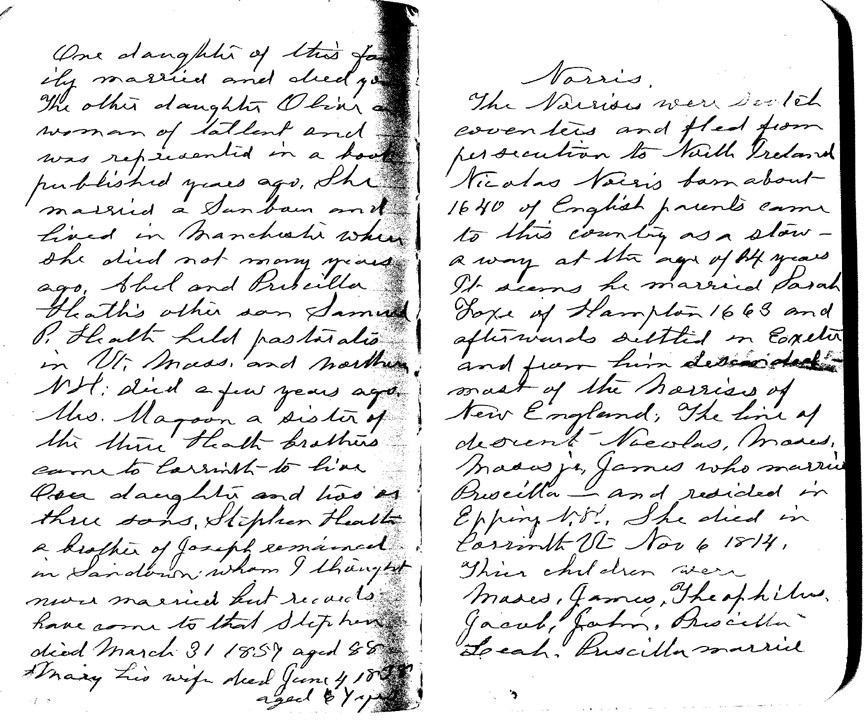 One daughter of this fa
ily married and died yo
The other daughter Olive a
woman of tallent and
was represented in a book
published years ago. She
married a Sanborn and
lived in Manchester where
she died not many years
ago. Abel and Priscilla
Heath's other son Samuel
P. Heath held pastorates
in Vt. Mass. and northern
N.H. died a few years ago.
Mrs. Magoon a sister of
the three Heath brothers
came to Corrinth to live
One daughter and two or
three sons. Stephen Heath
a brother of Joseph remained
in Sandown whom I thought
never married but records
have come to that Stephen
died March 31 1857 aged 88
Mary his wife died June 4
aged
Norris.
The Norrises were Scotch
coventers and fled from
persecution to North Ireland
Nicolas Norris born about
1640 of English parents came
to this country as a stow-
away at the age of 14 years
It seems he married Sarah
Foxe of Hampton 1663 and
afterwards settled in Exeter
and from him descended
most of the Norrises of
New England. The line of
descent Nicolas, Moses,
Moses jr, James who married
Priscilla — and resided in
Epping N.H. She died in
Corrinth Vt Nov 6 1814.
Thier children were
Moses, James, Theophilus,
Jacob, John, Priscilla
Leah. Priscilla married